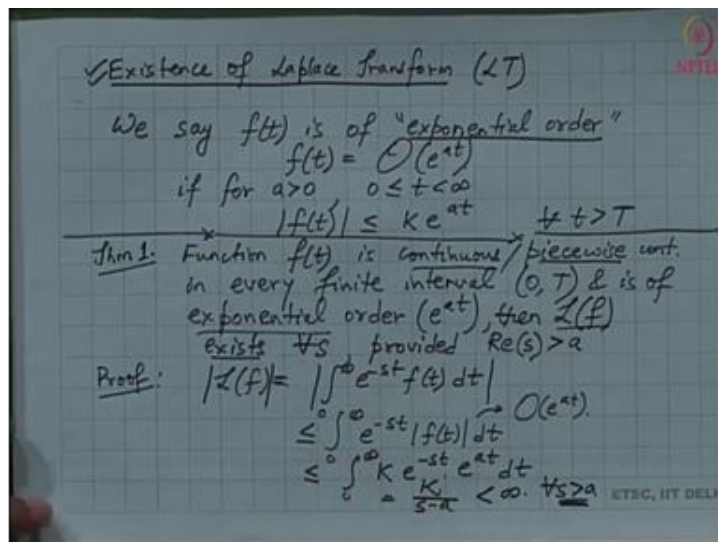 ✓Existence of Laplace Transform (LT)
NPTEL
We say f(t) is of "exponential order"
f(t) = O(e^{at})
if for a>0 0 ≤ t < ∞
|f(t)| ≤ K e^{at} ∀ t > T
Thm 1. Function f(t) is continuous / piecewise cont.
in every finite interval (0, T) & is of
exponential order (e^{at}), then L(f)
exists ∀s, provided Re(s) > a
Proof: |L(f)| = |∫_0^∞ e^{-st} f(t) dt|
≤ ∫_0^∞ e^{-st} |f(t)| dt → O(e^{at}).
≤ ∫_0^∞ K e^{-st} e^{at} dt
= K/(s-a) < ∞. ∀s>a
ETSC, IIT DEL